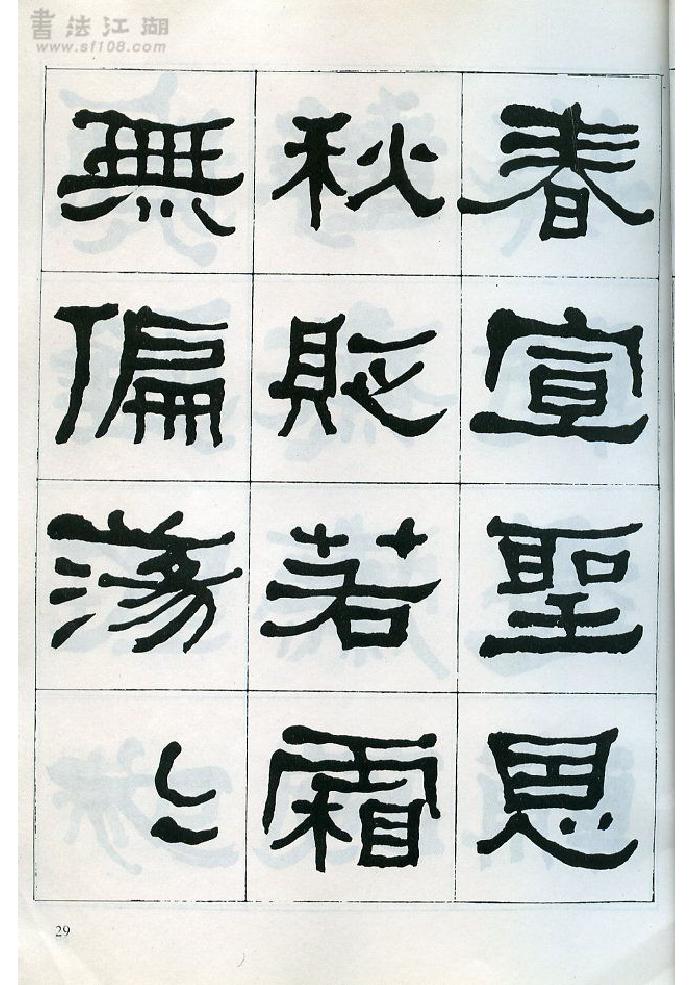 書法江湖
www.sf108.com
春宣聖恩
秋貶若霜
無偏蕩〻
29